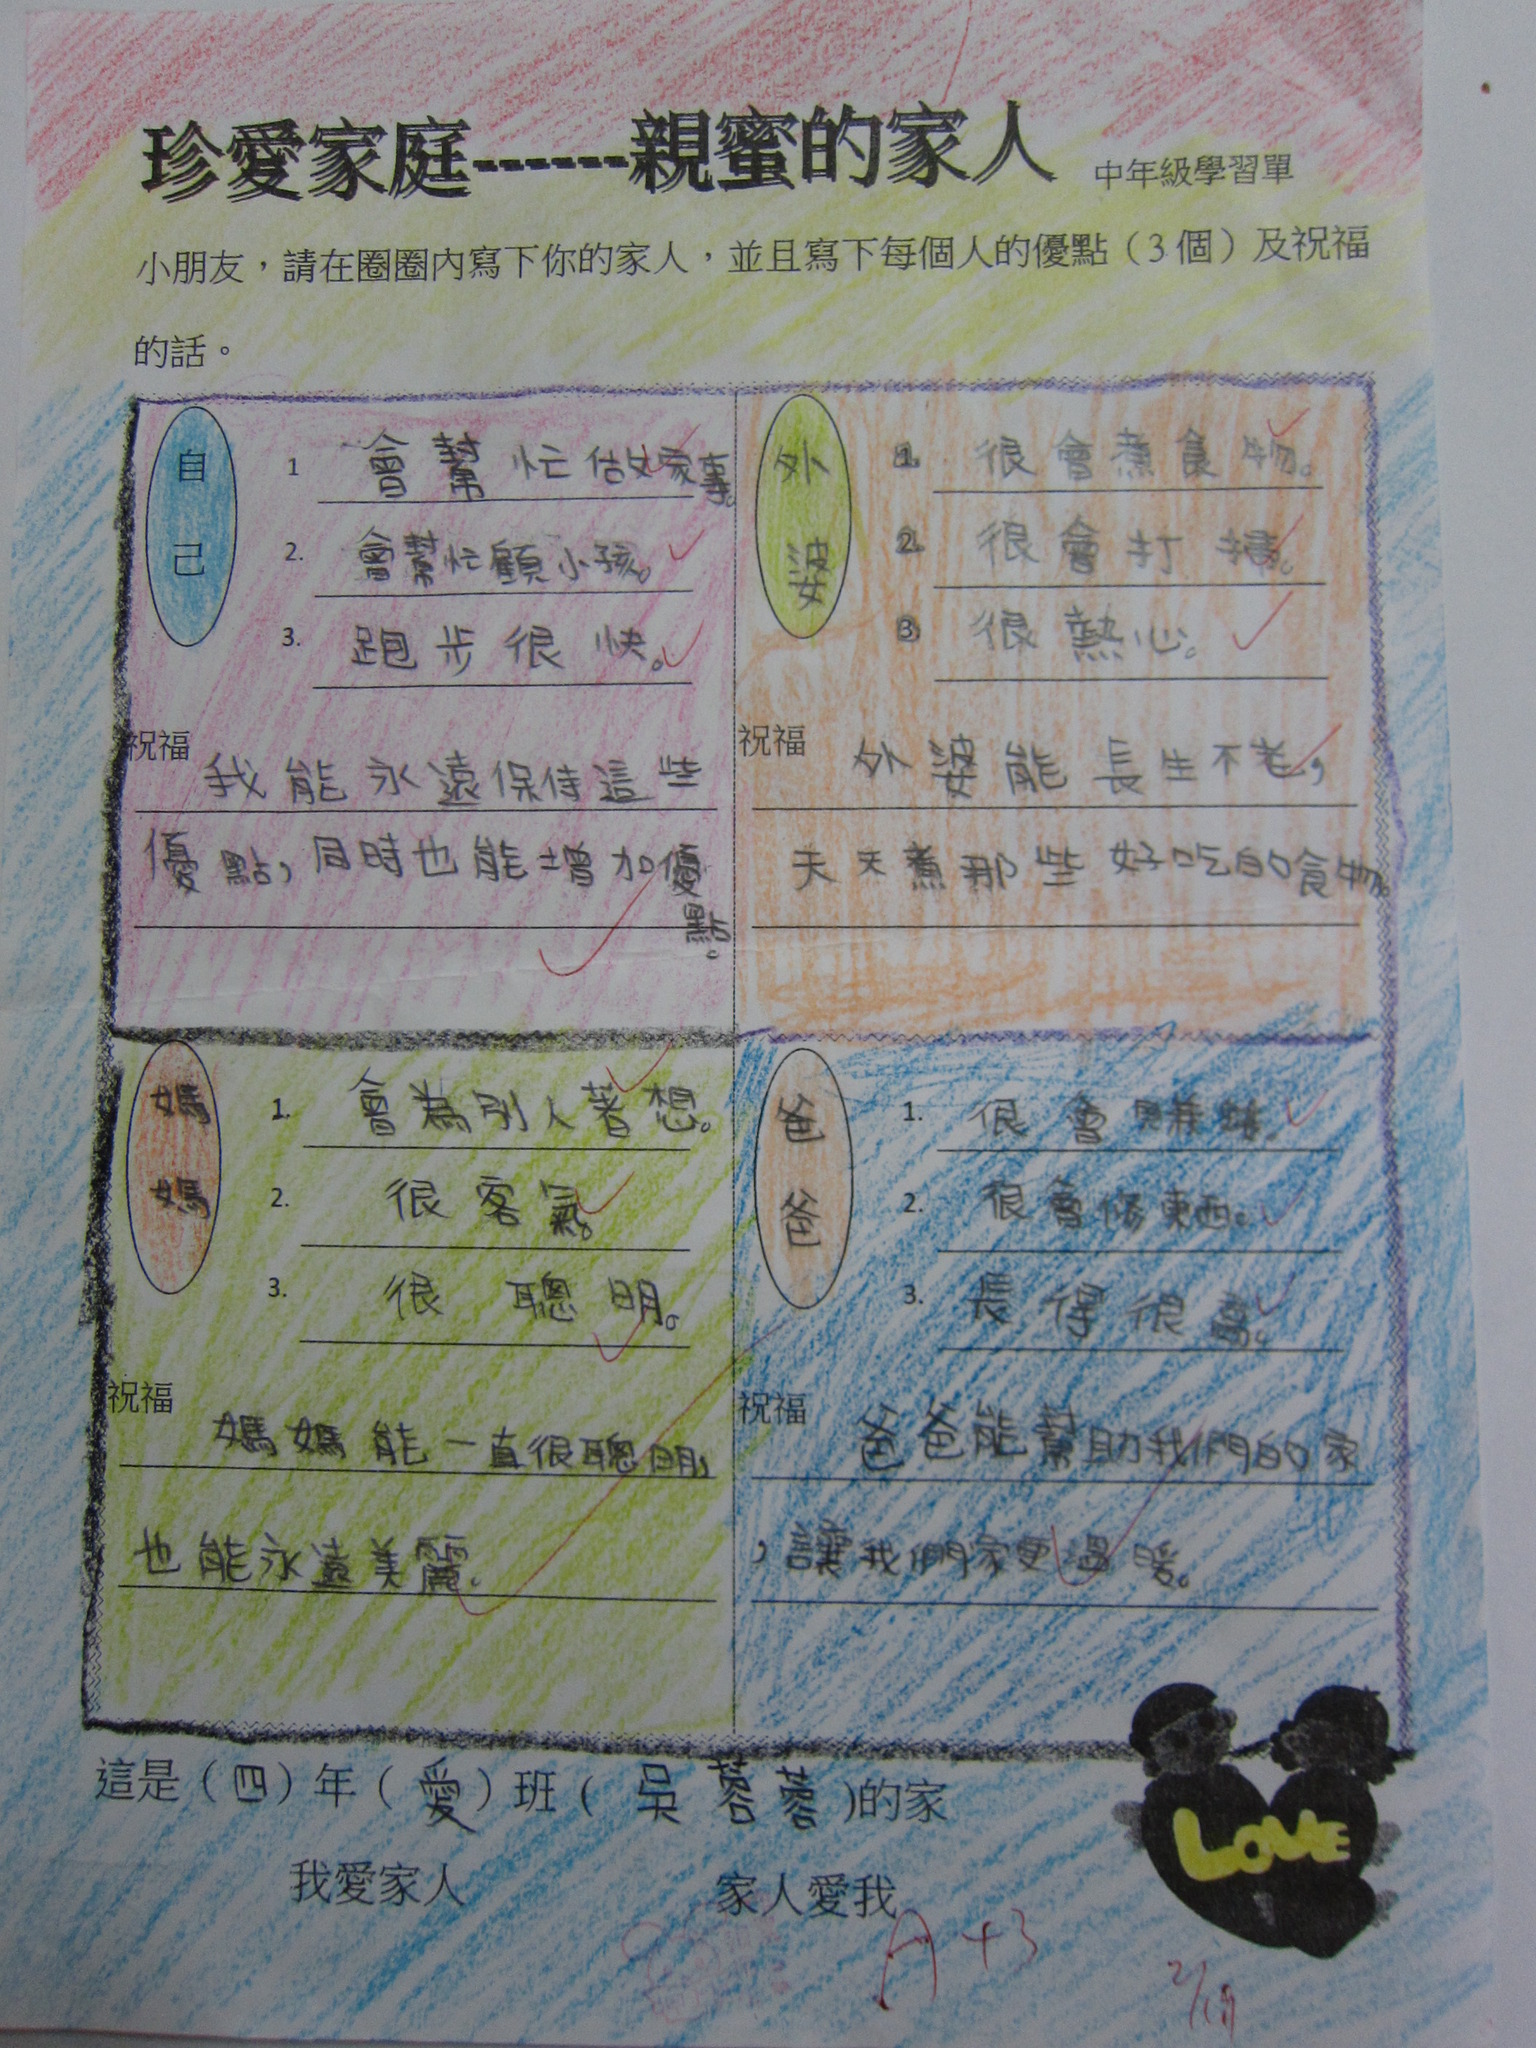 珍愛家庭------親蜜的家人 中年級學習單
小朋友，請在圈圈內寫下你的家人，並且寫下每個人的優點（3個）及祝福
的話。
自己
1 會幫忙做家事。
2. 會幫忙顧小孩。
3. 跑步很快。
祝福
我能永遠保侍這些
優點，同時也能增加優點。
外婆
1. 很會煮食物。
2. 很會打掃。
3. 很熱心。
祝福
外婆能長生不老，
天天煮那些好吃的食物。
媽媽
1. 會為別人著想。
2. 很客氣。
3. 很聰明。
祝福
媽媽能一直很聰明，
也能永遠美麗。
爸爸
1. 很會賺錢。
2. 很會修東西。
3. 長得很高。
祝福
爸爸能幫助我們的家
，讓我們家更溫暖。
這是（四）年（愛）班（吳蓉蓉)的家
我愛家人 家人愛我
LOVE
A+3